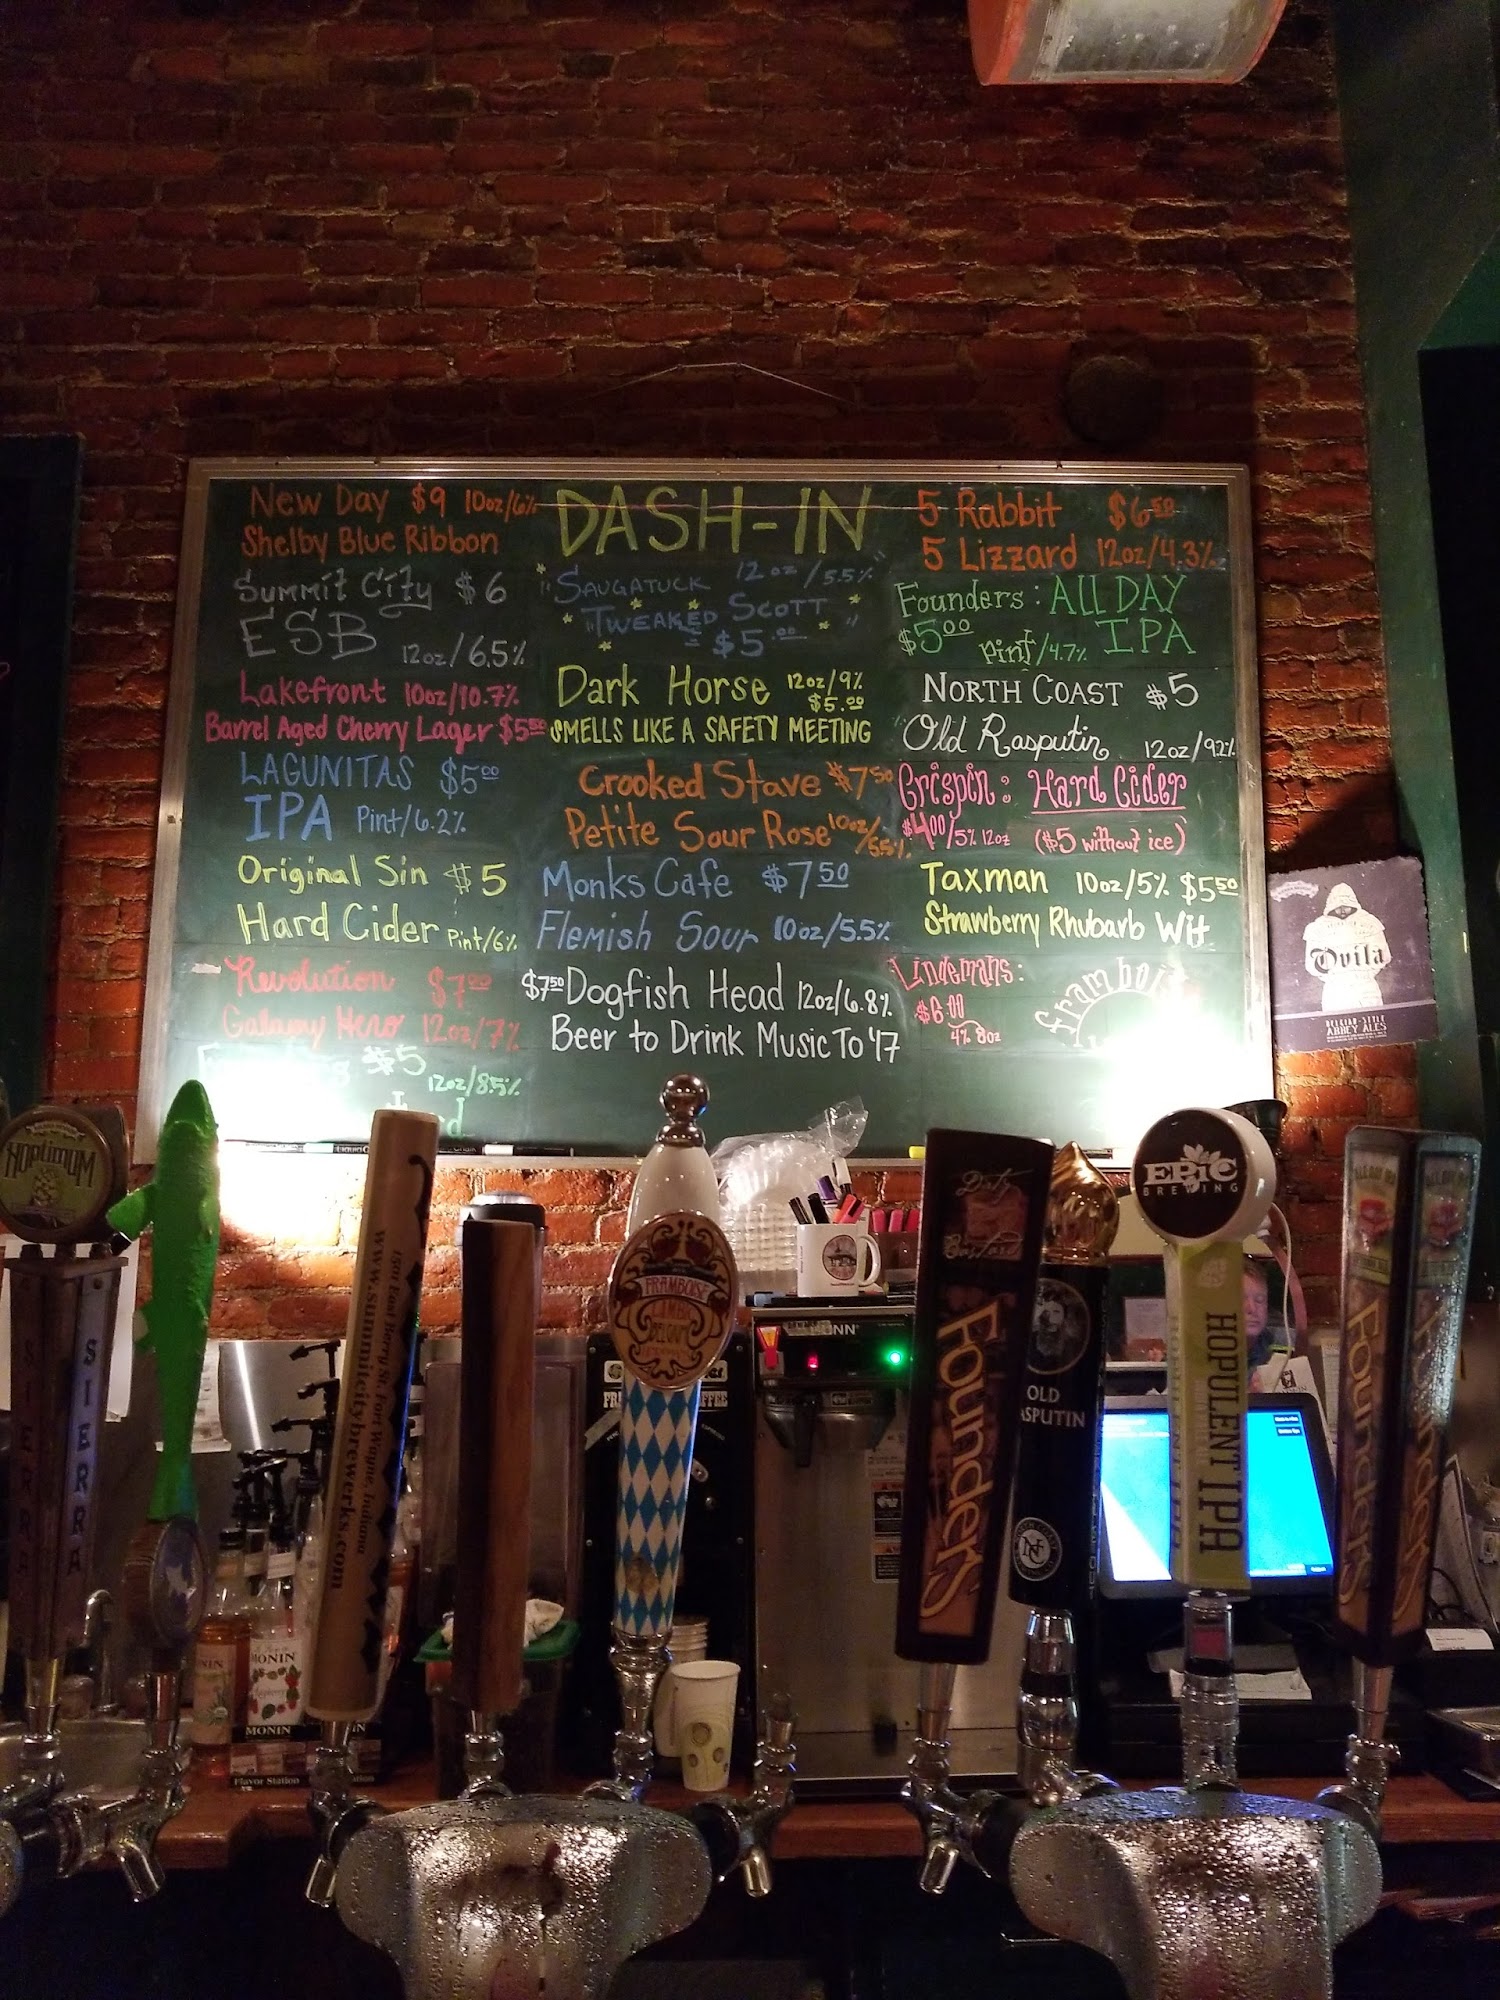 New Day $9 10oz/6%
Shelby Blue Ribbon
Summit City $6
ESB 12oz/6.5%
Lakefront 10oz/10.7%
Barrel Aged Cherry Lager $5.50
LAGUNITAS $5.00
IPA Pint/6.2%
Original Sin $5
Hard Cider Pint/6%
Revolution $7.00
Galaxy Hero 12oz/7%
$5
12oz/8.5%
DASH-IN
"SAUGATUCK 12oz/5.5%"
"TWEAKED SCOTT"
$5.00
Dark Horse 12oz/9%
$5.00
SMELLS LIKE A SAFETY MEETING
Crooked Stave $7.50
Petite Sour Rose 10oz/5.5%
Monks Cafe $7.50
Flemish Sour 10oz/5.5%
$7.50 Dogfish Head 12oz/6.8%
Beer to Drink Music To '17
5 Rabbit $6.50
5 Lizzard 12oz/4.3%
Founders: ALL DAY
$5.00 Pint/4.7% IPA
NORTH COAST $5
Old Rasputin 12oz/9.2%
Crispin: Hard Cider
$4.00/5% 12oz ($5 without ice)
Taxman 10oz/5% $5.50
Strawberry Rhubarb Wit
Lindemans:
$6.00
4% 8oz
Framboise
Ovila
BELGIAN-STYLE
ABBEY ALES
HOPTIMUM
SIERRA
SIERRA
1501 East Berry St. Fort Wayne, Indiana
www.summitcitybrewerks.com
FRAMBOISE
Dirty
Bastard
Founders
OLD
RASPUTIN
NC
EPIC
BREWING
HOPULENT IPA
Founders
Founders
MONIN
MONIN
Flavor Station